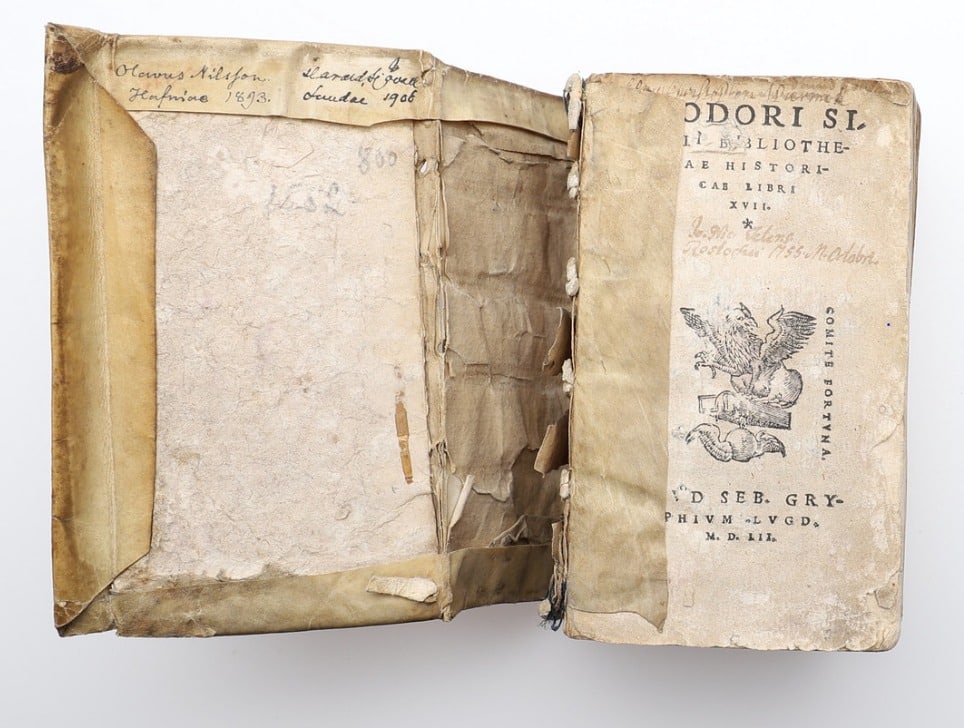 Olavus Nilsson.
Hafniae 1893.
Lundae 1906
800
ODORI SI.
II BIBLIOTHE-
AE HISTORI-
CAE LIBRI
XVII.
*
Rostochii 1755 M. Octobri
COMITE FORTVNA.
VD SEB. GRY-
PHIVM LVGD.
M. D. LII.